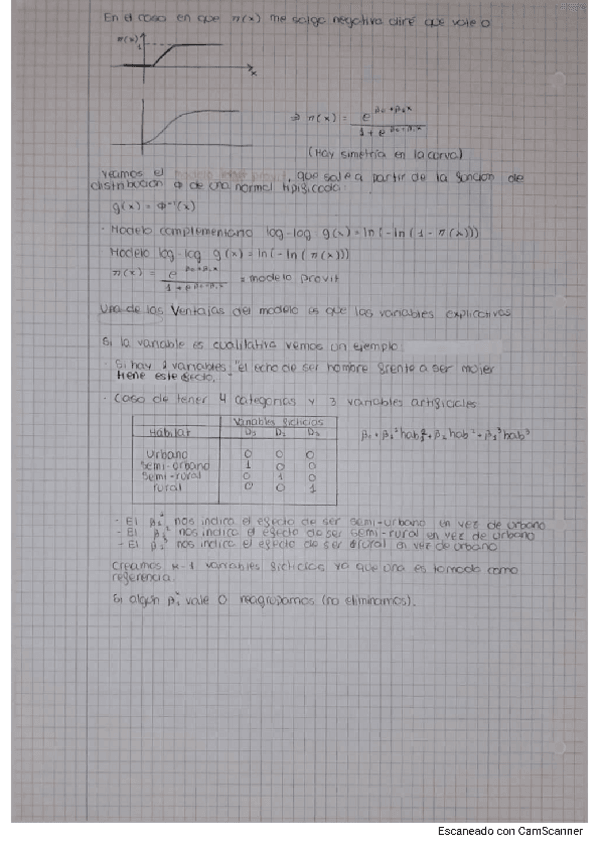 En el caso en que π(x) me salga negativa diré que vale 0
π(x)
1
x
⇒ π(x) = e^(β₀+β₁x) / (1 + e^(β₀+β₁x))
(Hay simetría en la curva)
veamos el , que sale a partir de la función de
distribución Φ de una normal tipificada:
g(x) = Φ⁻¹(x)
· Modelo complementario log-log g(x) = ln(-ln(1 - π(x)))
Modelo log-log g(x) = ln(-ln(π(x)))
π(x) = e^(β₀+β₁x) / (1 + e^(β₀+β₁x)) = modelo provit
Una de las Ventajas del modelo es que las variables explicativas
Si la variable es cualitativa vemos un ejemplo
· Si hay 2 variables "el echo de ser hombre frente a ser mujer
tiene este efecto."
· Caso de tener 4 categorías y 3 variables artificiales
Variables ficticias
Habitat
Urbano 0 0 0
Semi-urbano 1 0 0
Semi-rural 0 1 0
rural 0 0 1
- El nos indica el efecto de ser semi-urbano en vez de urbano
- El nos indica el efecto de ser semi-rural en vez de urbano
- El nos indica el efecto de ser rural en vez de urbano
Creamos k-1 variables ficticias ya que una es tomada como
referencia.
Si algún vale 0 reagrupamos (no eliminamos).
Escaneado con CamScanner